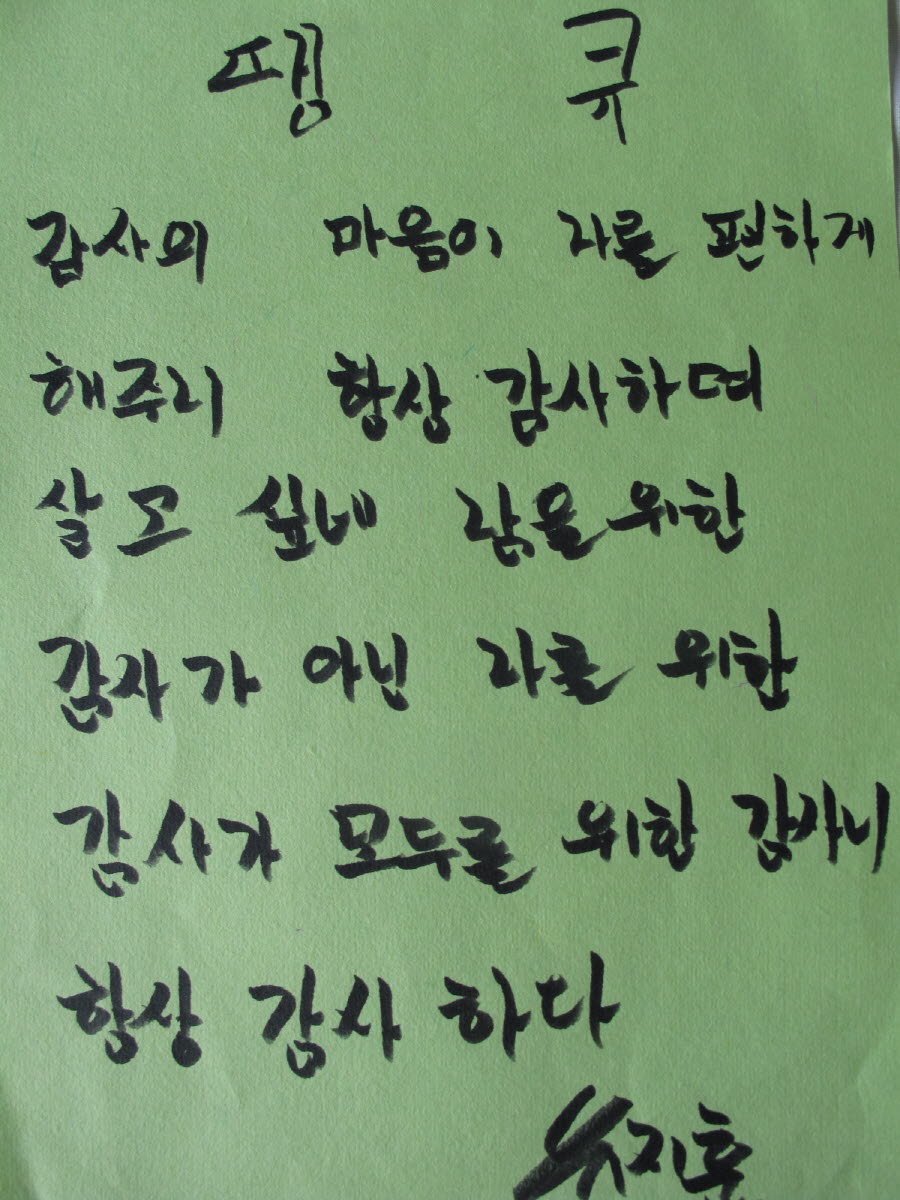 땡 큐
감사의 마음이 나를 편하게
해주리 항상 감사하며
살고 싶네 남을 위한
감사가 아닌 나를 위한
감사가 모두를 위한 감사니
항상 감사 하다
유지훈